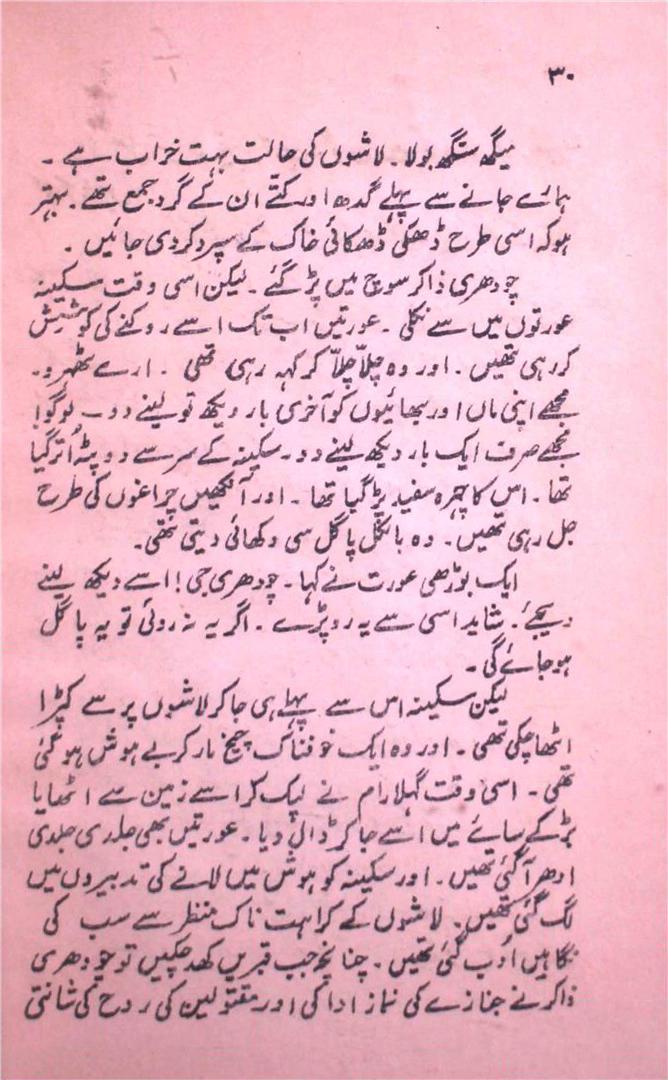 ۳۰
میگھ سنگھ بولا۔ لاشوں کی حالت بہت خراب ہے ۔
ہمارے جانے سے پہلے گدھ اور کتے ان کے گرد جمع تھے ۔ بہتر
ہو کہ اسی طرح ڈھکی ڈھکائی خاک کے سپرد کر دی جائیں ۔
چودھری ذاکر سوچ میں پڑ گئے ۔ لیکن اسی وقت سکینہ
عورتوں میں سے نکلی ۔ عورتیں اب تک اسے روکنے کی کوشیش
کر رہی تھیں ۔ اور وہ چلّا چلّا کر کہہ رہی تھی ۔ ارے ٹھہرو۔
مجھے اپنی ماں اور بھائیوں کو آخری بار دیکھ تو لینے دو ۔ لوگو!
مجھے صرف ایک بار دیکھ لینے دو۔ سکینہ کے سر سے دوپٹہ اُتر گیا
تھا ۔ اس کا چہرہ سفید پڑ گیا تھا ۔ اور آنکھیں چراغوں کی طرح
جل رہی تھیں۔ وہ بالکل پاگل سی دکھائی دیتی تھی۔
ایک بوڑھی عورت نے کہا ۔ چودھری جی! اسے دیکھ لینے
دیجئے ۔ شاید اسی سے یہ رو پڑے ۔ اگر یہ نہ روئی تو یہ پاگل
ہو جائے گی ۔
لیکن سکینہ اس سے پہلے ہی جا کر لاشوں پر سے کپڑا
اٹھا چکی تھی ۔ اور وہ ایک خوفناک چیخ مار کر بے ہوش ہو گئی
تھی ۔ اسی وقت گہلا رام نے لپک کر اسے زمین سے اٹھایا
بڑ کے سائے میں اسے جا کر ڈال دیا۔ عورتیں بھی جلدی جلدی
ادھر آ گئی تھیں ۔ اور سکینہ کو ہوش میں لانے کی تدبیروں میں
لگ گئی تھیں۔ لاشوں کے کراہت ناک منظر سے سب کی
نگاہیں اُوب گئی تھیں ۔ چنانچہ جب قبریں کھد چکیں تو چودھری
ذاکر نے جنازے کی نماز ادا کی اور مقتولین کی روح کی شانتی